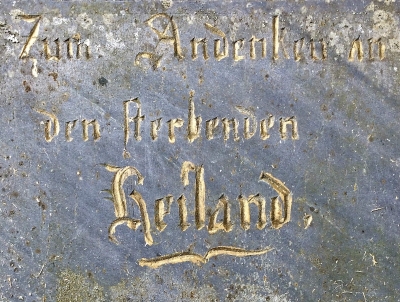 Zum Andenken an
den sterbenden
Heiland.